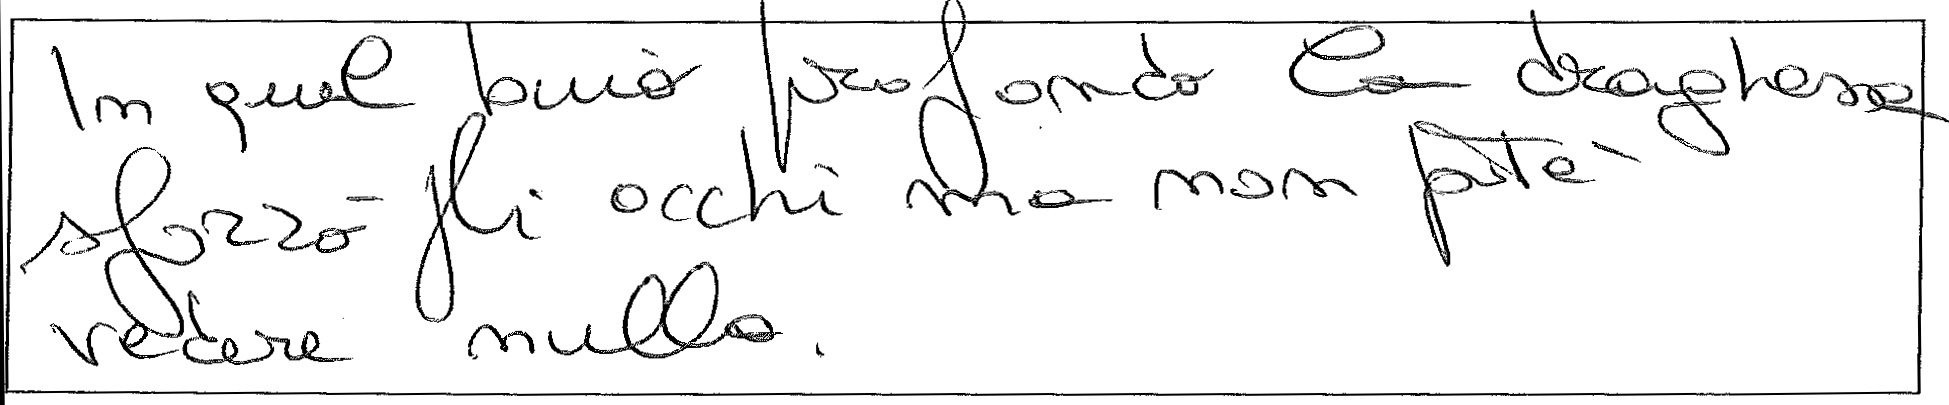 In quel buio profondo la draghessa
sforzò gli occhi ma non poté
vedere nulla.